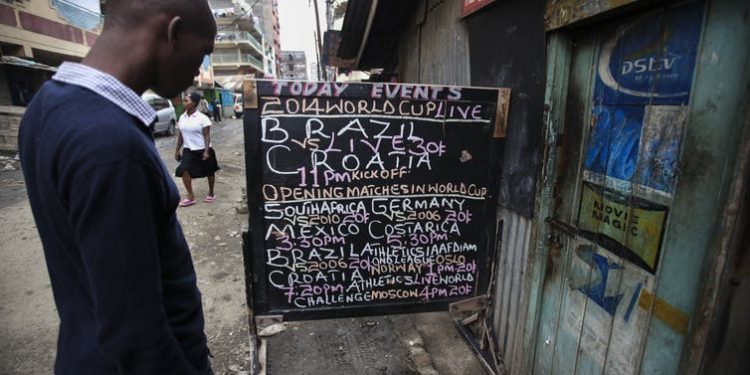 TODAY EVENTS
2014 WORLD CUP LIVE
BRAZIL
VS LIVE 30/
CROATIA
11PM KICK OFF
OPENING MATCHES IN WORLD CUP
SOUTH AFRICA GERMANY
VS 2010 20/ VS 2006 20/
MEXICO COSTARICA
3.30PM 5.30PM
BRAZIL ATHLETICS IAAF DIAM
VS 2006 20/ OND LEAGUE OSLO
CROATIA NORWAY 1PM 20/
7.20PM ATHLETICS LIVE WORLD
CHALLENGE MOSCOW 4PM 20/
DSTV
MOVIE
MAGIC